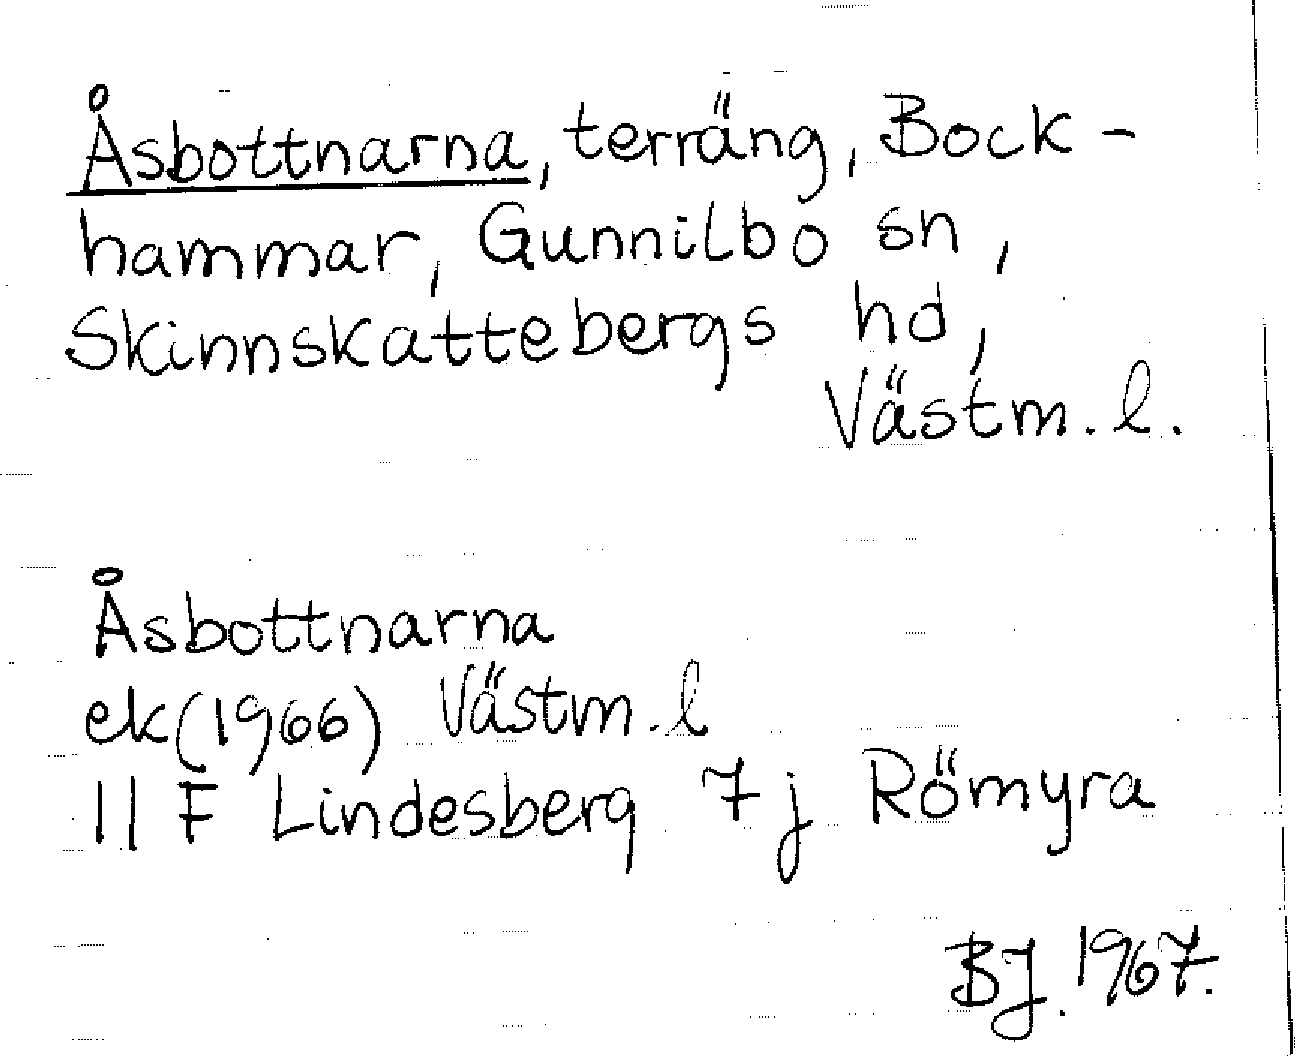 Åsbottnarna, terräng, Bock-
hammar, Gunnilbo sn,
Skinnskattebergs hd,
Västm.l.
Åsbottnarna
ek(1966) Västm.l
11 F Lindesberg 7j Römyra
BJ. 1967.